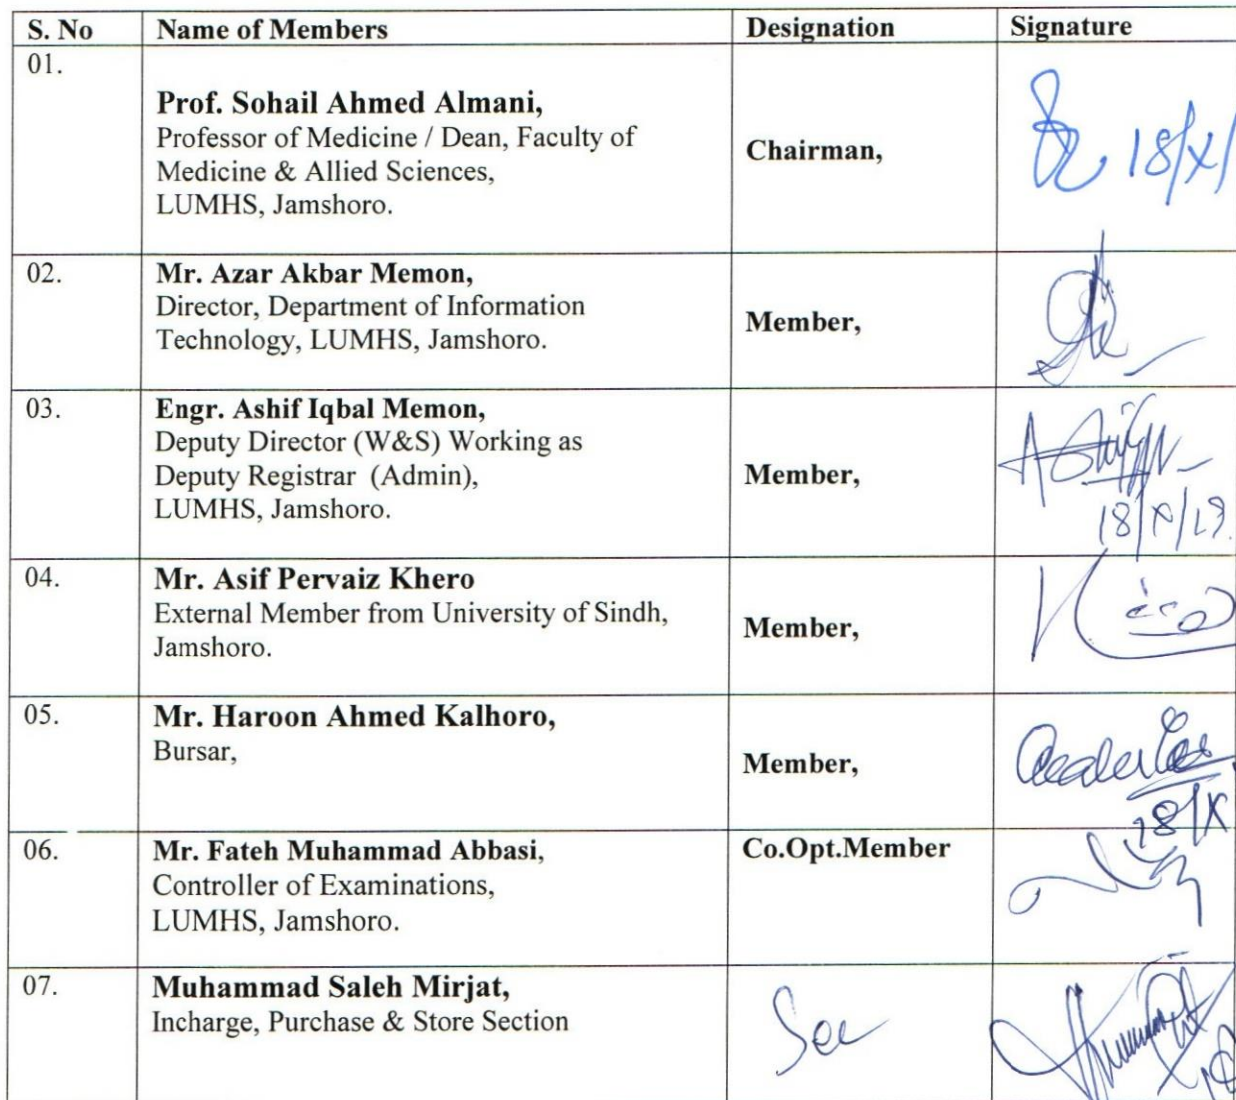 S. No Name of Members Designation Signature
01.
Prof. Sohail Ahmed Almani,
Professor of Medicine / Dean, Faculty of
Medicine & Allied Sciences,
LUMHS, Jamshoro.
Chairman,
18/X/
02.
Mr. Azar Akbar Memon,
Director, Department of Information
Technology, LUMHS, Jamshoro.
Member,
03.
Engr. Ashif Iqbal Memon,
Deputy Director (W&S) Working as
Deputy Registrar (Admin),
LUMHS, Jamshoro.
Member,
18/X/19.
04.
Mr. Asif Pervaiz Khero
External Member from University of Sindh,
Jamshoro.
Member,
05.
Mr. Haroon Ahmed Kalhoro,
Bursar,
Member,
18/X
06.
Mr. Fateh Muhammad Abbasi,
Controller of Examinations,
LUMHS, Jamshoro.
Co.Opt.Member
07.
Muhammad Saleh Mirjat,
Incharge, Purchase & Store Section